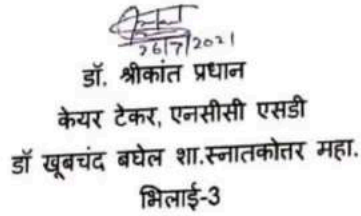 26/7/2021
डॉ. श्रीकांत प्रधान
केयर टेकर, एनसीसी एसडी
डॉ खूबचंद बघेल शा.स्नातकोतर महा.
भिलाई-3